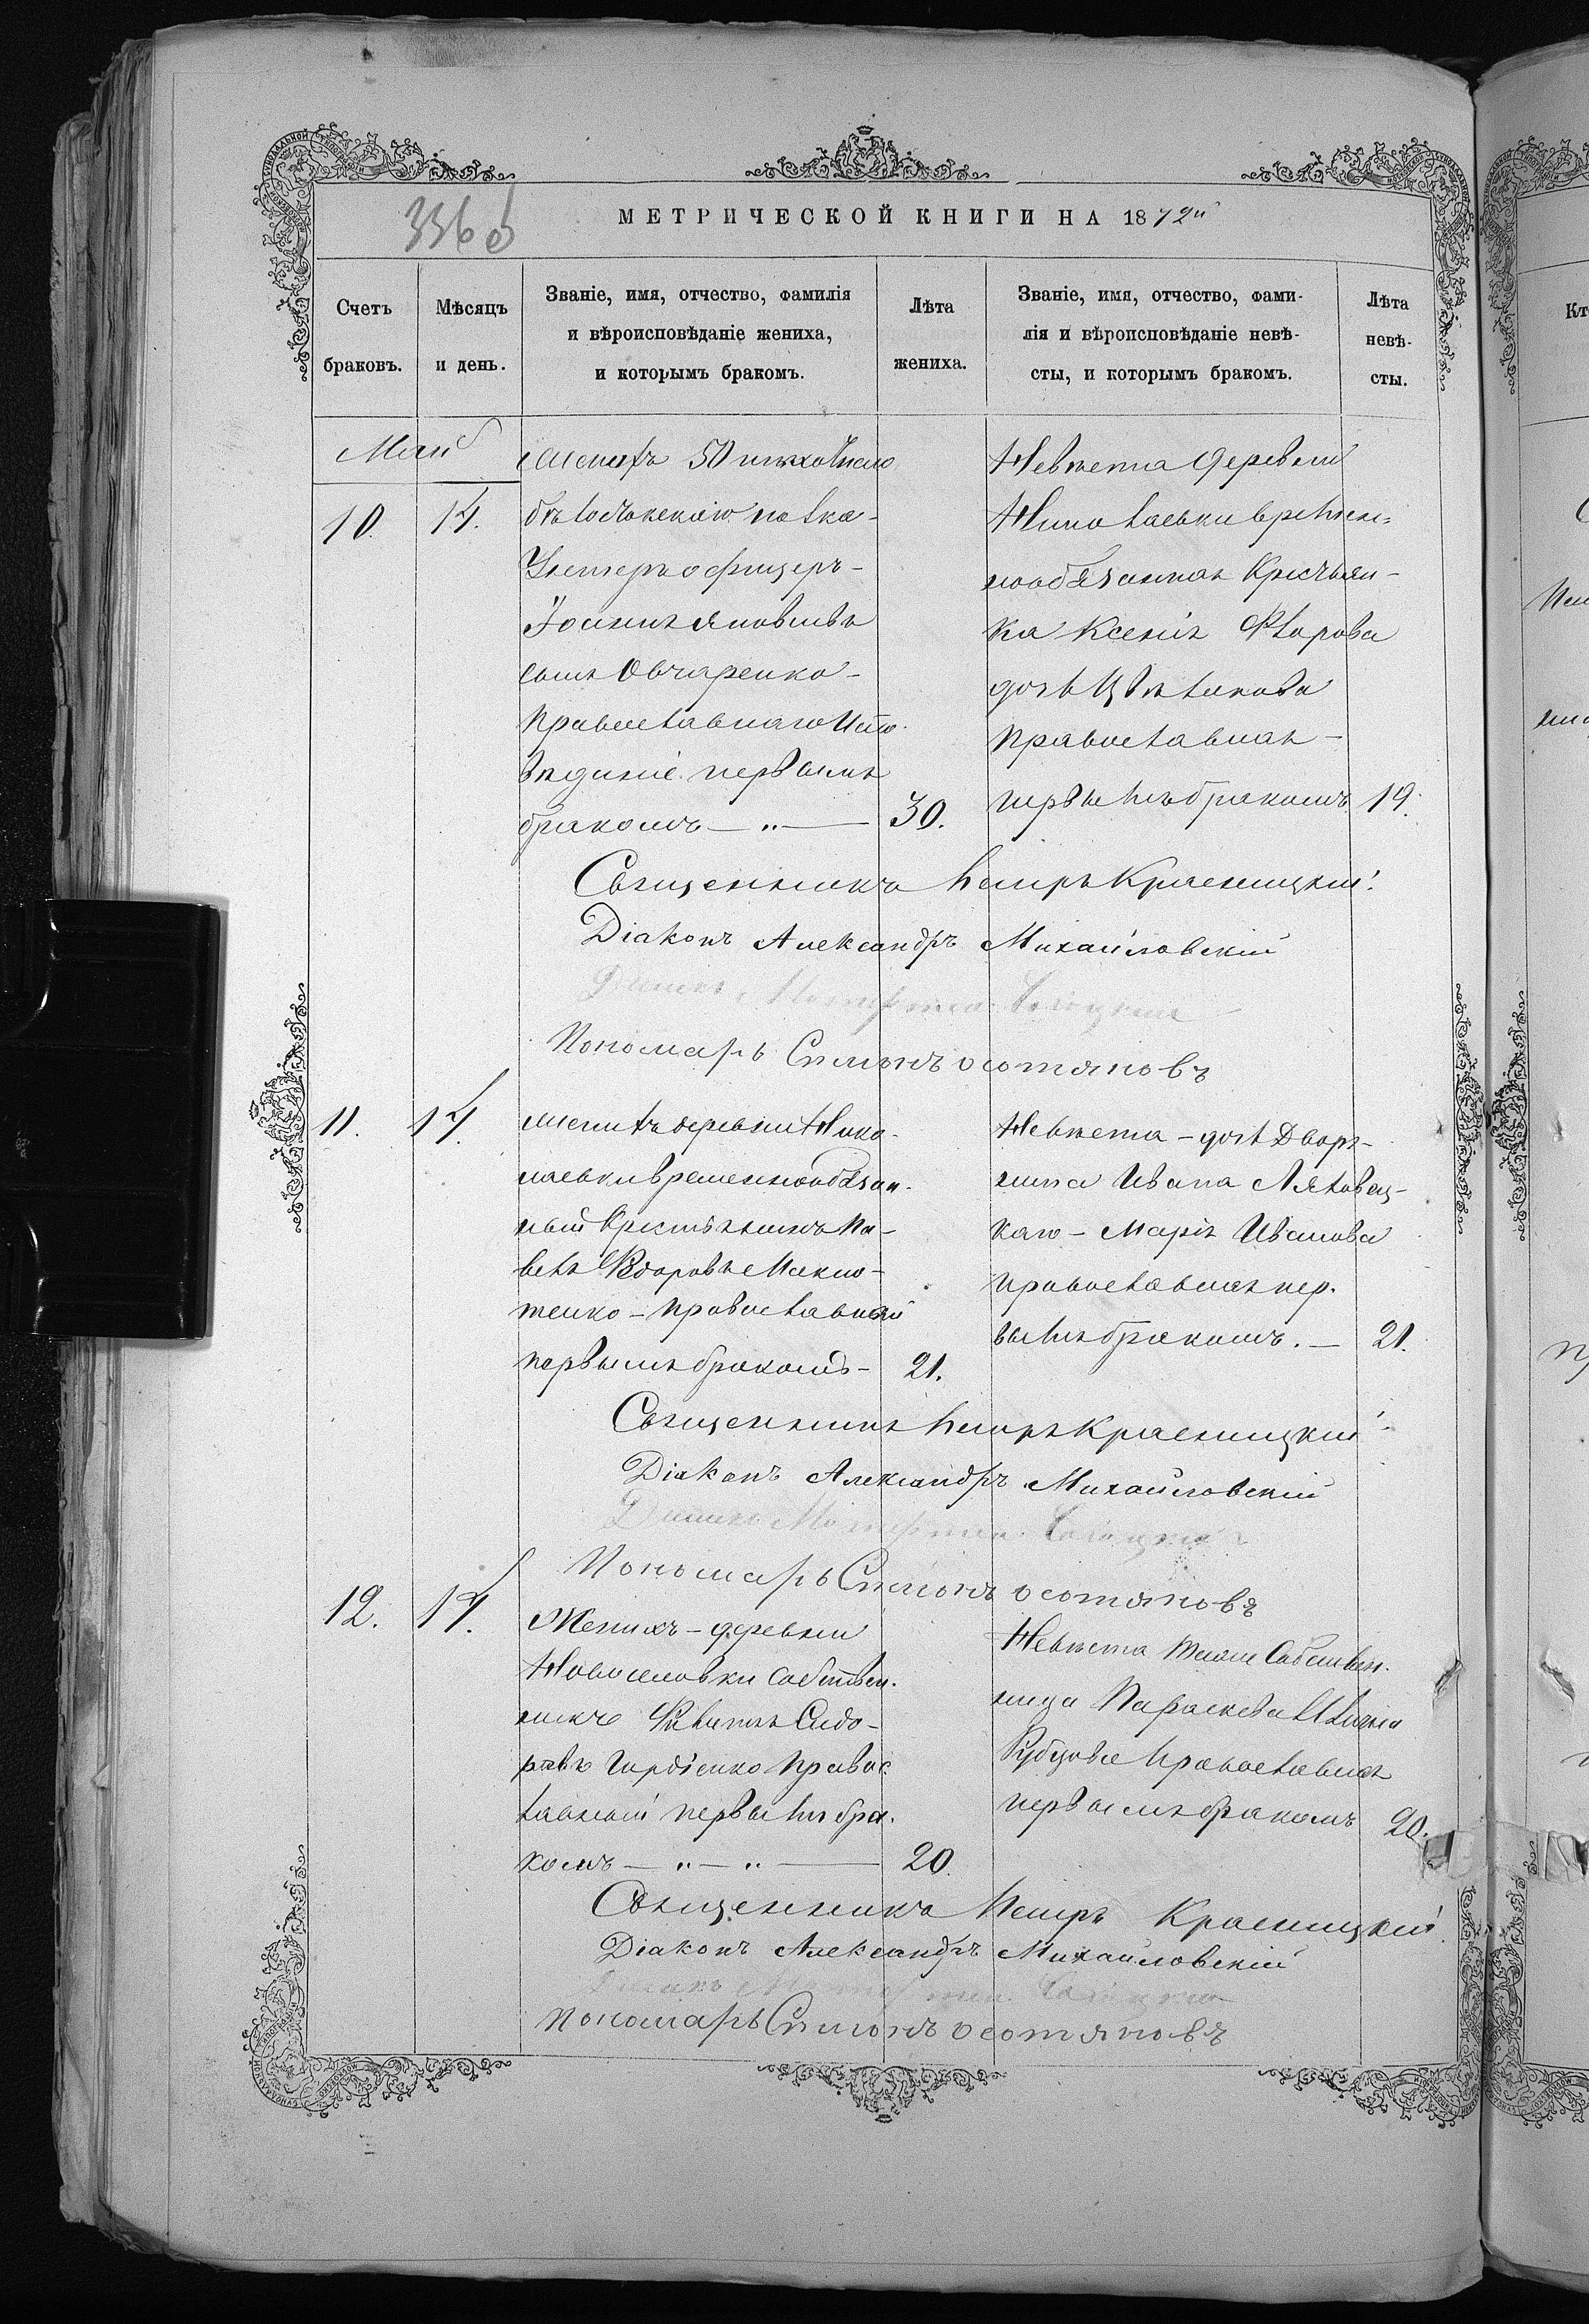 336 об
МЕТРИЧЕСКОЙ КНИГИ НА 1872й
Счетъ браковъ.
Мѣсяцъ и день.
Званіе, имя, отчество, фамилія
и вѣроисповѣданіе жениха,
и которымъ бракомъ.
Лѣта жениха.
Званіе, имя, отчество, фами-
лія и вѣроисповѣданіе невѣ-
сты, и которымъ бракомъ.
Лѣта невѣ- сты.
Май
10. 14.
женихъ 50 пѣхотнаго
бѣлостокскаго полка-
Унтеръ офицеръ-
Іоаннъ Яковлевъ
сынъ Овчаренко-
православнаго Испо-
вѣданіе первымъ
бракомъ — „ — 30.
Невѣста деревни
Николаевки времен-
нообязанная Крестьян-
ка Ксенія Флорова
дочь Цвѣликова
православная-
первымъ бракомъ 19.
Священникъ Петръ Красницкій.
Діаконъ Александръ Михайловскій
Пономарь Симонъ Остяновъ
11. 14.
женихъ деревни Нико-
лаевки временнообязан-
ный Крестьянинъ Па-
велъ Ѳедоровъ
православный
первымъ бракомъ- 21.
Невѣста - дочь Дворя-
нина Ивана Ляховец-
каго - Марія Иванова
православная пер-
вымъ бракомъ. — 21.
Священникъ Петръ Красницкій
Діаконъ Александръ Михайловскій
Пономарь Симонъ Остяновъ
12. 14.
Женихъ - деревни
Новоселовки собствен-
никъ Филиппъ Сидо-
ровъ Гордіенко правос
лавный первымъ бра-
комъ — „ — „ — 20.
Невѣста тоже Собствен-
ница Параскева Ильина
Рубцова православная
первымъ бракомъ 20.
Священникъ Петръ Красницкій.
Діаконъ Александръ Михайловскій
Пономарь Симонъ Остяновъ